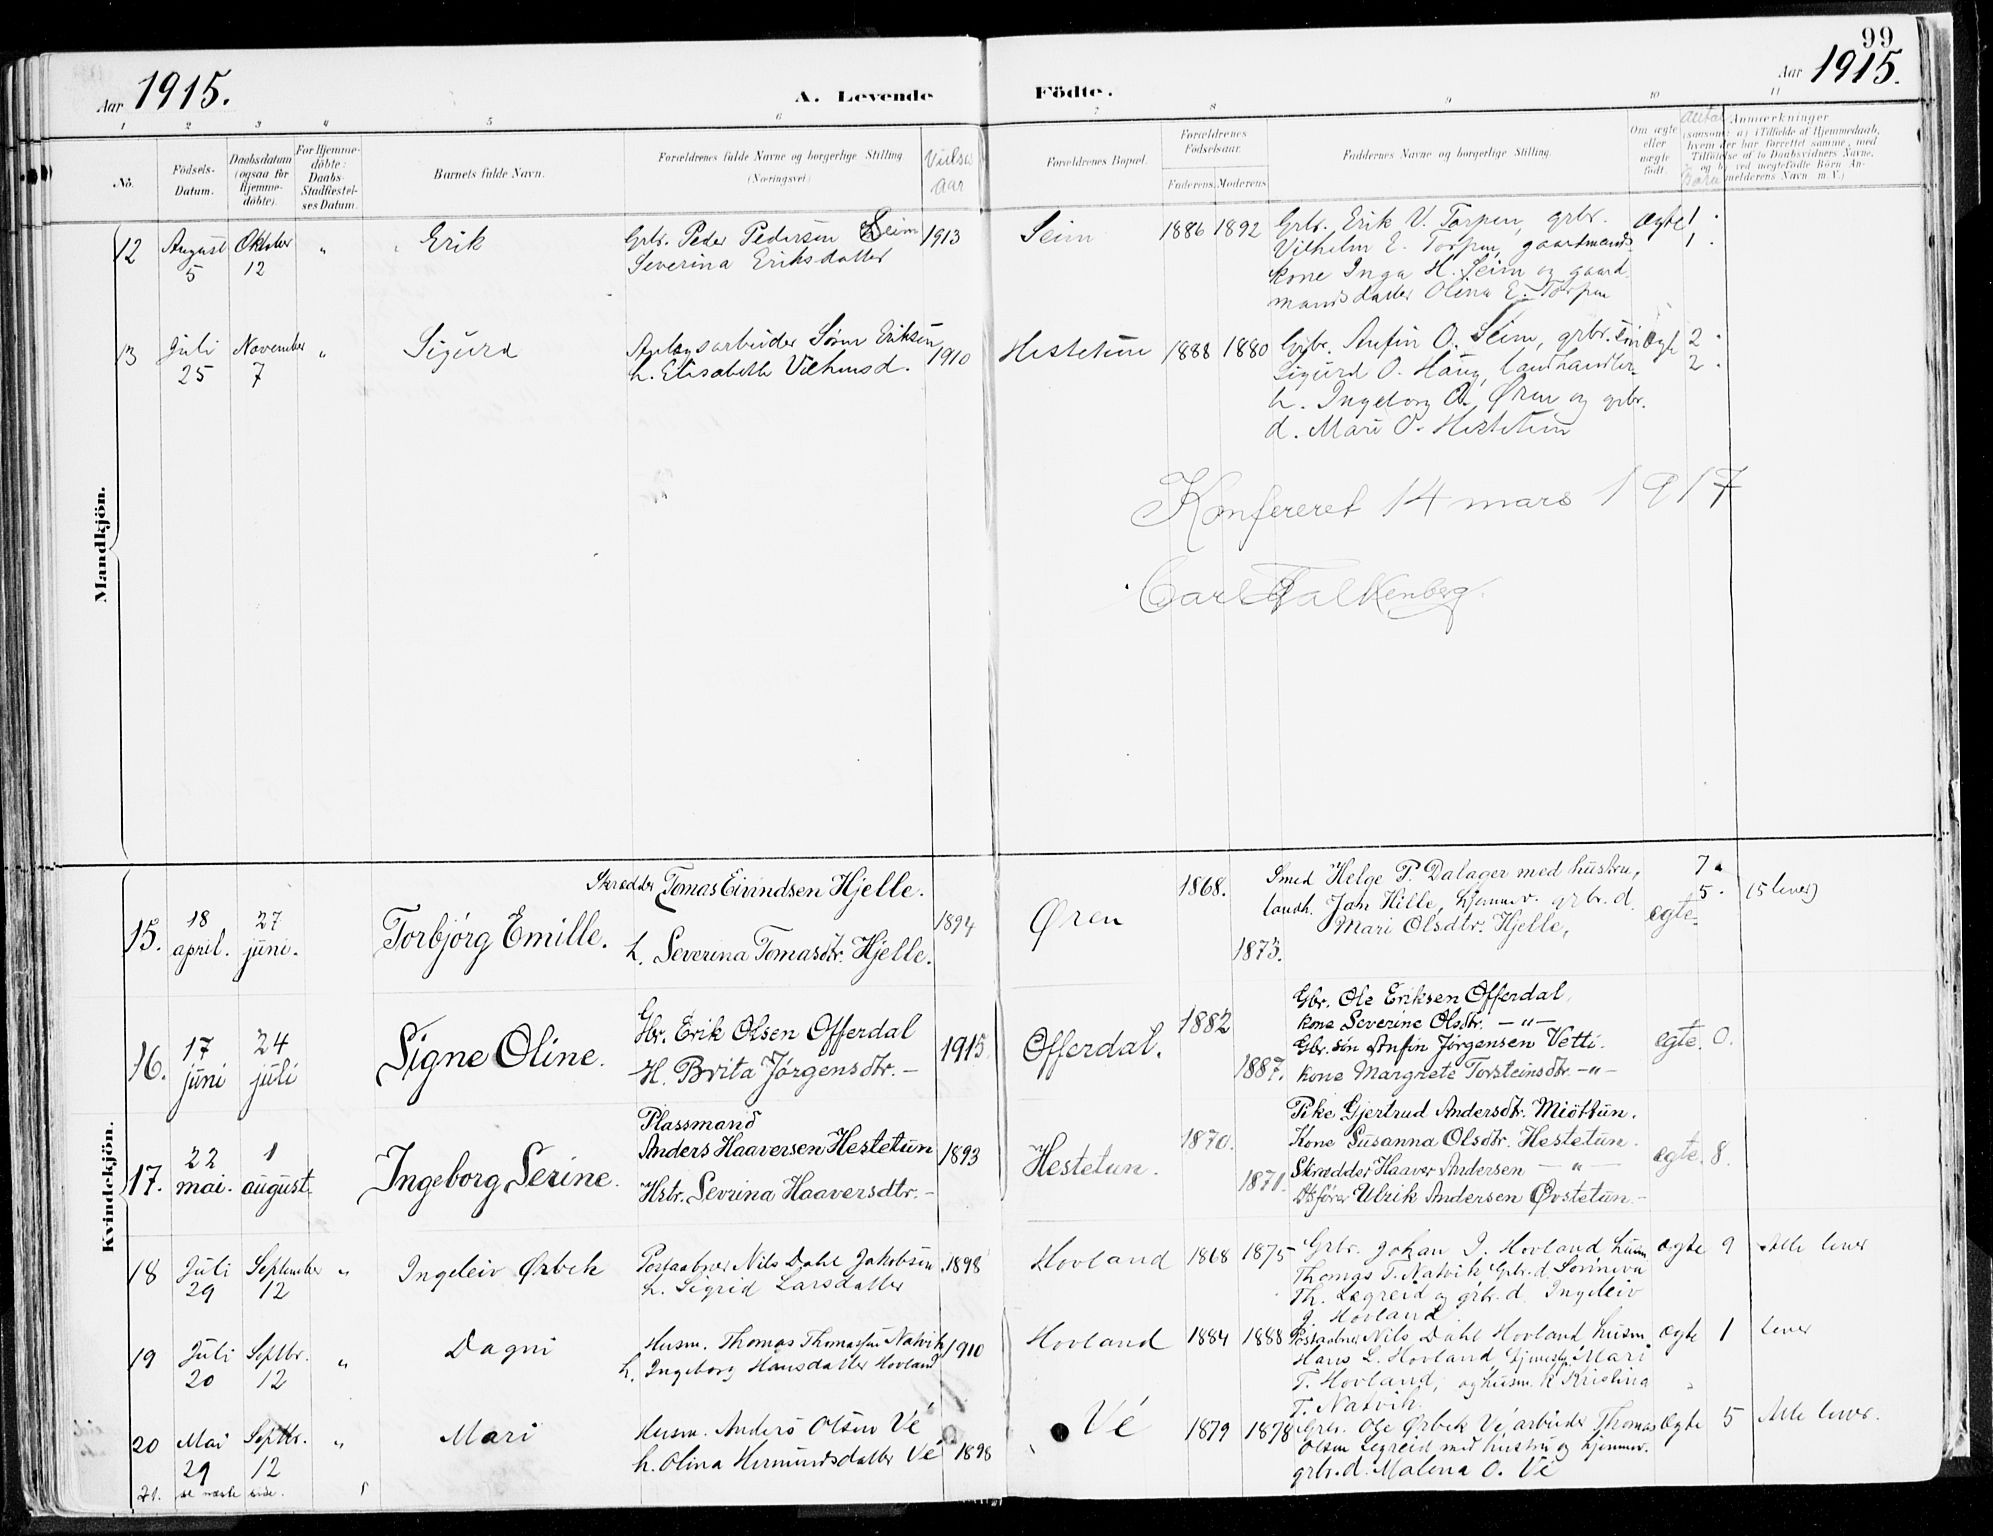 99
Aar 1915.
A. Levende Födte.
Aar 1915.
1 2 3 4 5 6 7 8 9 10 11
No.
Födsels-Datum.
Daabsdatum (ogsaa for Hjemme-döbte).
For Hjemme-döbte: Daabs-Stadfestel-ses Datum.
Barnets fulde Navn.
Forældrenes fulde Navne og borgerlige Stilling (Næringsvei)
Vielses Aar
Forældrenes Bopæl.
Forældrenes Födselsaar.
Faderens. Moderens.
Faddernes Navne og borgerlige Stilling.
Om ægte eller uægte födt.
Antal Børn
Anmerkninger
Mandkjön.
12 August 5 Oktober 12 " Erik
Grbr. Peder Pedersen Seim
Severina Eriksdatter
1913 Seim 1886 1892
Grbr. Erik V. Torpen, grbr.
Vilhelm E. Torpen, gaardmands-
kone Inga H. Seim og gaard
mandsdatter Olina E. Torpen
Ægte 1. 1.
13 Juli 25 November 7 " Sigurd
Anlægsarbeider Søren Eriksen
h. Elisabeth Vilhemsd.
1910 Hestetun 1888 1880
Grbr. Anfin O. Seim, grbr.
Sigurd O. Haug, landhandler
h. Ingeborg O. Øren og grbr.
d. Mari O. Hestetun
Ægte 2. 2.
Konfereret 14 mars 1917
Carl Falkenberg.
Kvindekjön.
15. 18 april. 27 juni. Torbjørg Emille.
Skrædder Tomas Eivindsen Hjelle.
h. Severina Tomasdtr. Hjelle.
1894 Øren 1868. 1873.
Smed Helge P. Dalager med hustru,
landh. Jah Hille, hjemmv. grbr. d.
Mari Olsdtr. Hjelle,
egte. 7. 5. (5 lever)
16. 17 juni 24 juli Signe Oline.
Gbr. Erik Olsen Offerdal
H. Brita Jørgensdtr. —
1915. Offerdal. 1882 1887.
Gbr. Ole Eriksen Offerdal,
kone Severine Olsdtr. — " —
Gbr. søn Anfin Jørgensen Vetti.
kone Margrete Torsteinsdtr. — " —
egte. 0.
17. 22 mai. 1 august. Ingeborg Serine.
Plassmand
Anders Haaversen Hestetun
Hstr. Sevrina Haaversdtr. —
1893 Hestetun. 1870. 1871.
Pike Gjertrud Andersdtr. Miöttun.
Kone Susanna Olsdtr. Hestetun.
Skrædder Haaver Andersen — " —
Ulrik Andersen Øvstetun. —
egte. 8.
18 Juli 29 September 12 " Ingeleiv Ørbek
Postaabner Nils Dahl Jakobsen
h. Sigrid Larsdatter
1898 Hovland 1868 1875
Grbr. Johan J. Hovland husm
Thomas T. Natvik Grbr. d. Sørineva
Th. Lægreid og grbr. d. Ingeleiv
J. Hovland.
Ægte 9 Alle lever
19 Juli 20 Septbr. 12 " Dagni
Husm. Thomas Thomassen Natvik
h. Ingeborg Hansdatter Hovland
1910 Hovland 1884 1888
Postaabner Nils Dahl Hovland husm
Hans L. Hovland, Mari
T. Hovland, og husm. k Kristina
T. Natvik.
Ægte 1 lever
20 Mai 29 Septbr. 12 " Mari
Husm. Anders Olsen Vé
h. Olina Hermundsdatter Vé
1898 Vé 1879 1878
Grbr. Ole Ørbek Vé, arbeider Thomas
Olsen Legreid med hustru og hjemmv.
grbr. d. Malena O. Vé
Ægte 5 Alle lever.
21. se næste side.